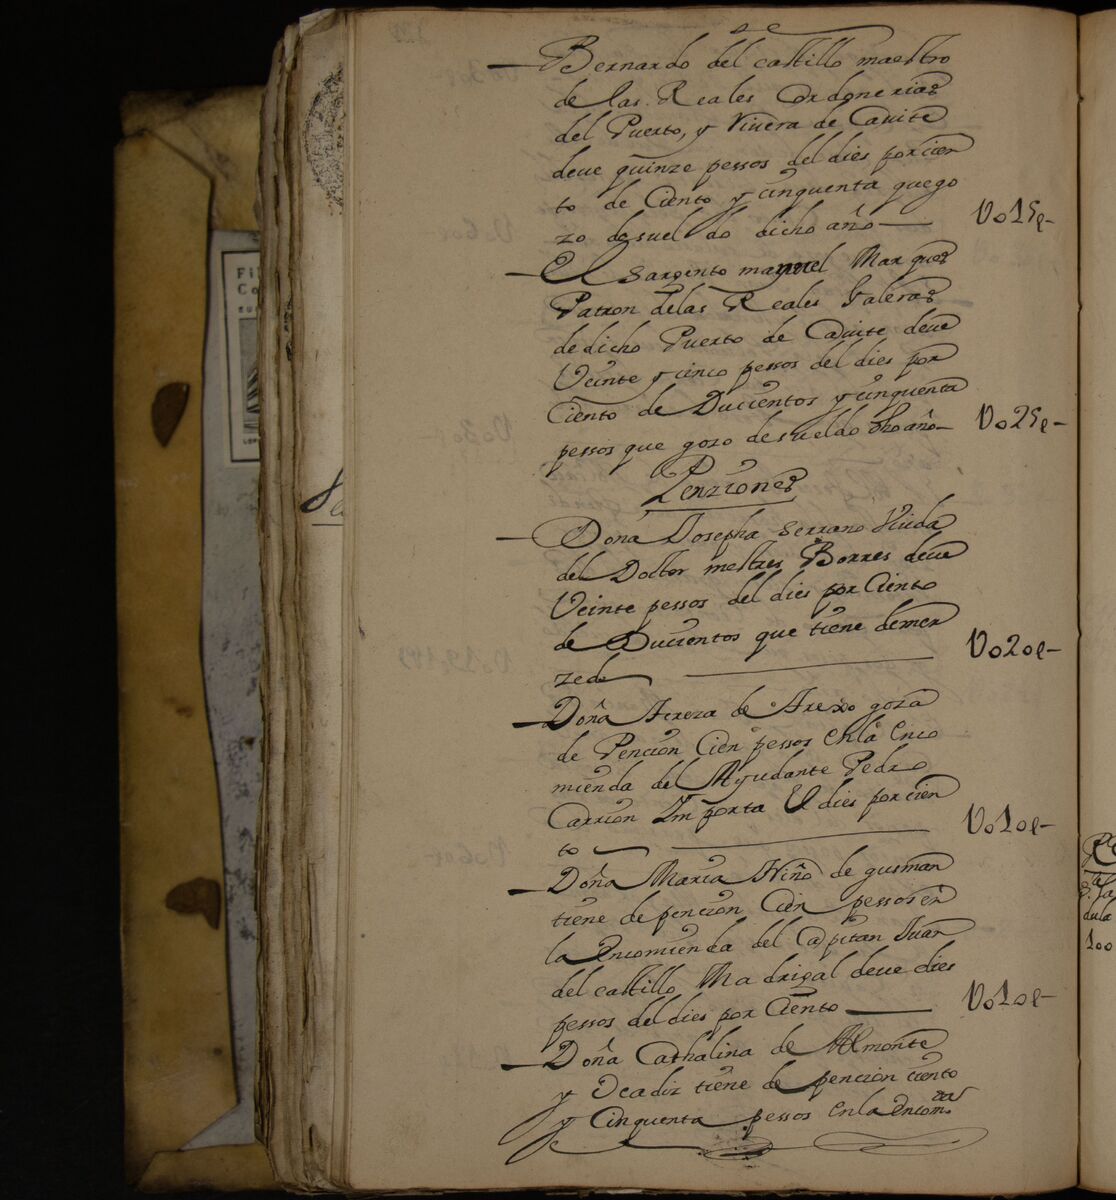 Bernardo del castillo maestro
de las Reales Cordonerias
del Puerto, y Rivera de Cavite
deve quinze pessos del dies por cien
to de Ciento y cinquenta que go
zo de suel do dicho año
V015p
El sargento manuel Marques
Patron delas Reales Galeras
de dicho Puerto de Cavite deve
Veinte y cinco pessos del dies por
Ciento de Ducientos y cinquenta
pessos que gozo de sueldo dho año
V025p
Penziones
Doña Josepha Serrano Viuda
del Doctor mestres Borres deve
Veinte pessos del dies por Ciento
de Ducientos que tiene demer
zed
V020p
Doña Tereza de Arexo goza
de Pencion Cien pessos en la Enco
mienda del Ayudante Pedro
Carrion Importa el dies por cien
to
V010p
Doña Maria Niño de gusman
tiene de pencion Cien pessos en
la Encomienda del Capitan Juan
del castillo Madrigal deve dies
pessos del dies por Ciento
V010p
Doña Cathalina de Almonte
y Ucadiz tiene de pencion ciento
y Cinquenta pessos en la encomda
Fi
Co
dula
100